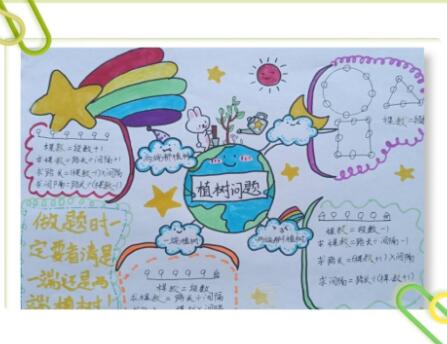 植树问题
两端都植树
棵数=段数+1
求棵数=路长÷间隔+1
求路长=(棵数-1)×间隔
求间隔=路长÷(棵数-1)
棵数=段数
做题时一
定要看清是
一端还是两
端植树!
一端植树
棵数=段数
求棵数=路长÷间隔
两端不植树
棵数=段数-1
求棵数=路长÷间隔-1
求路长=(棵数+1)×间隔
求间隔=路长÷(棵数+1)